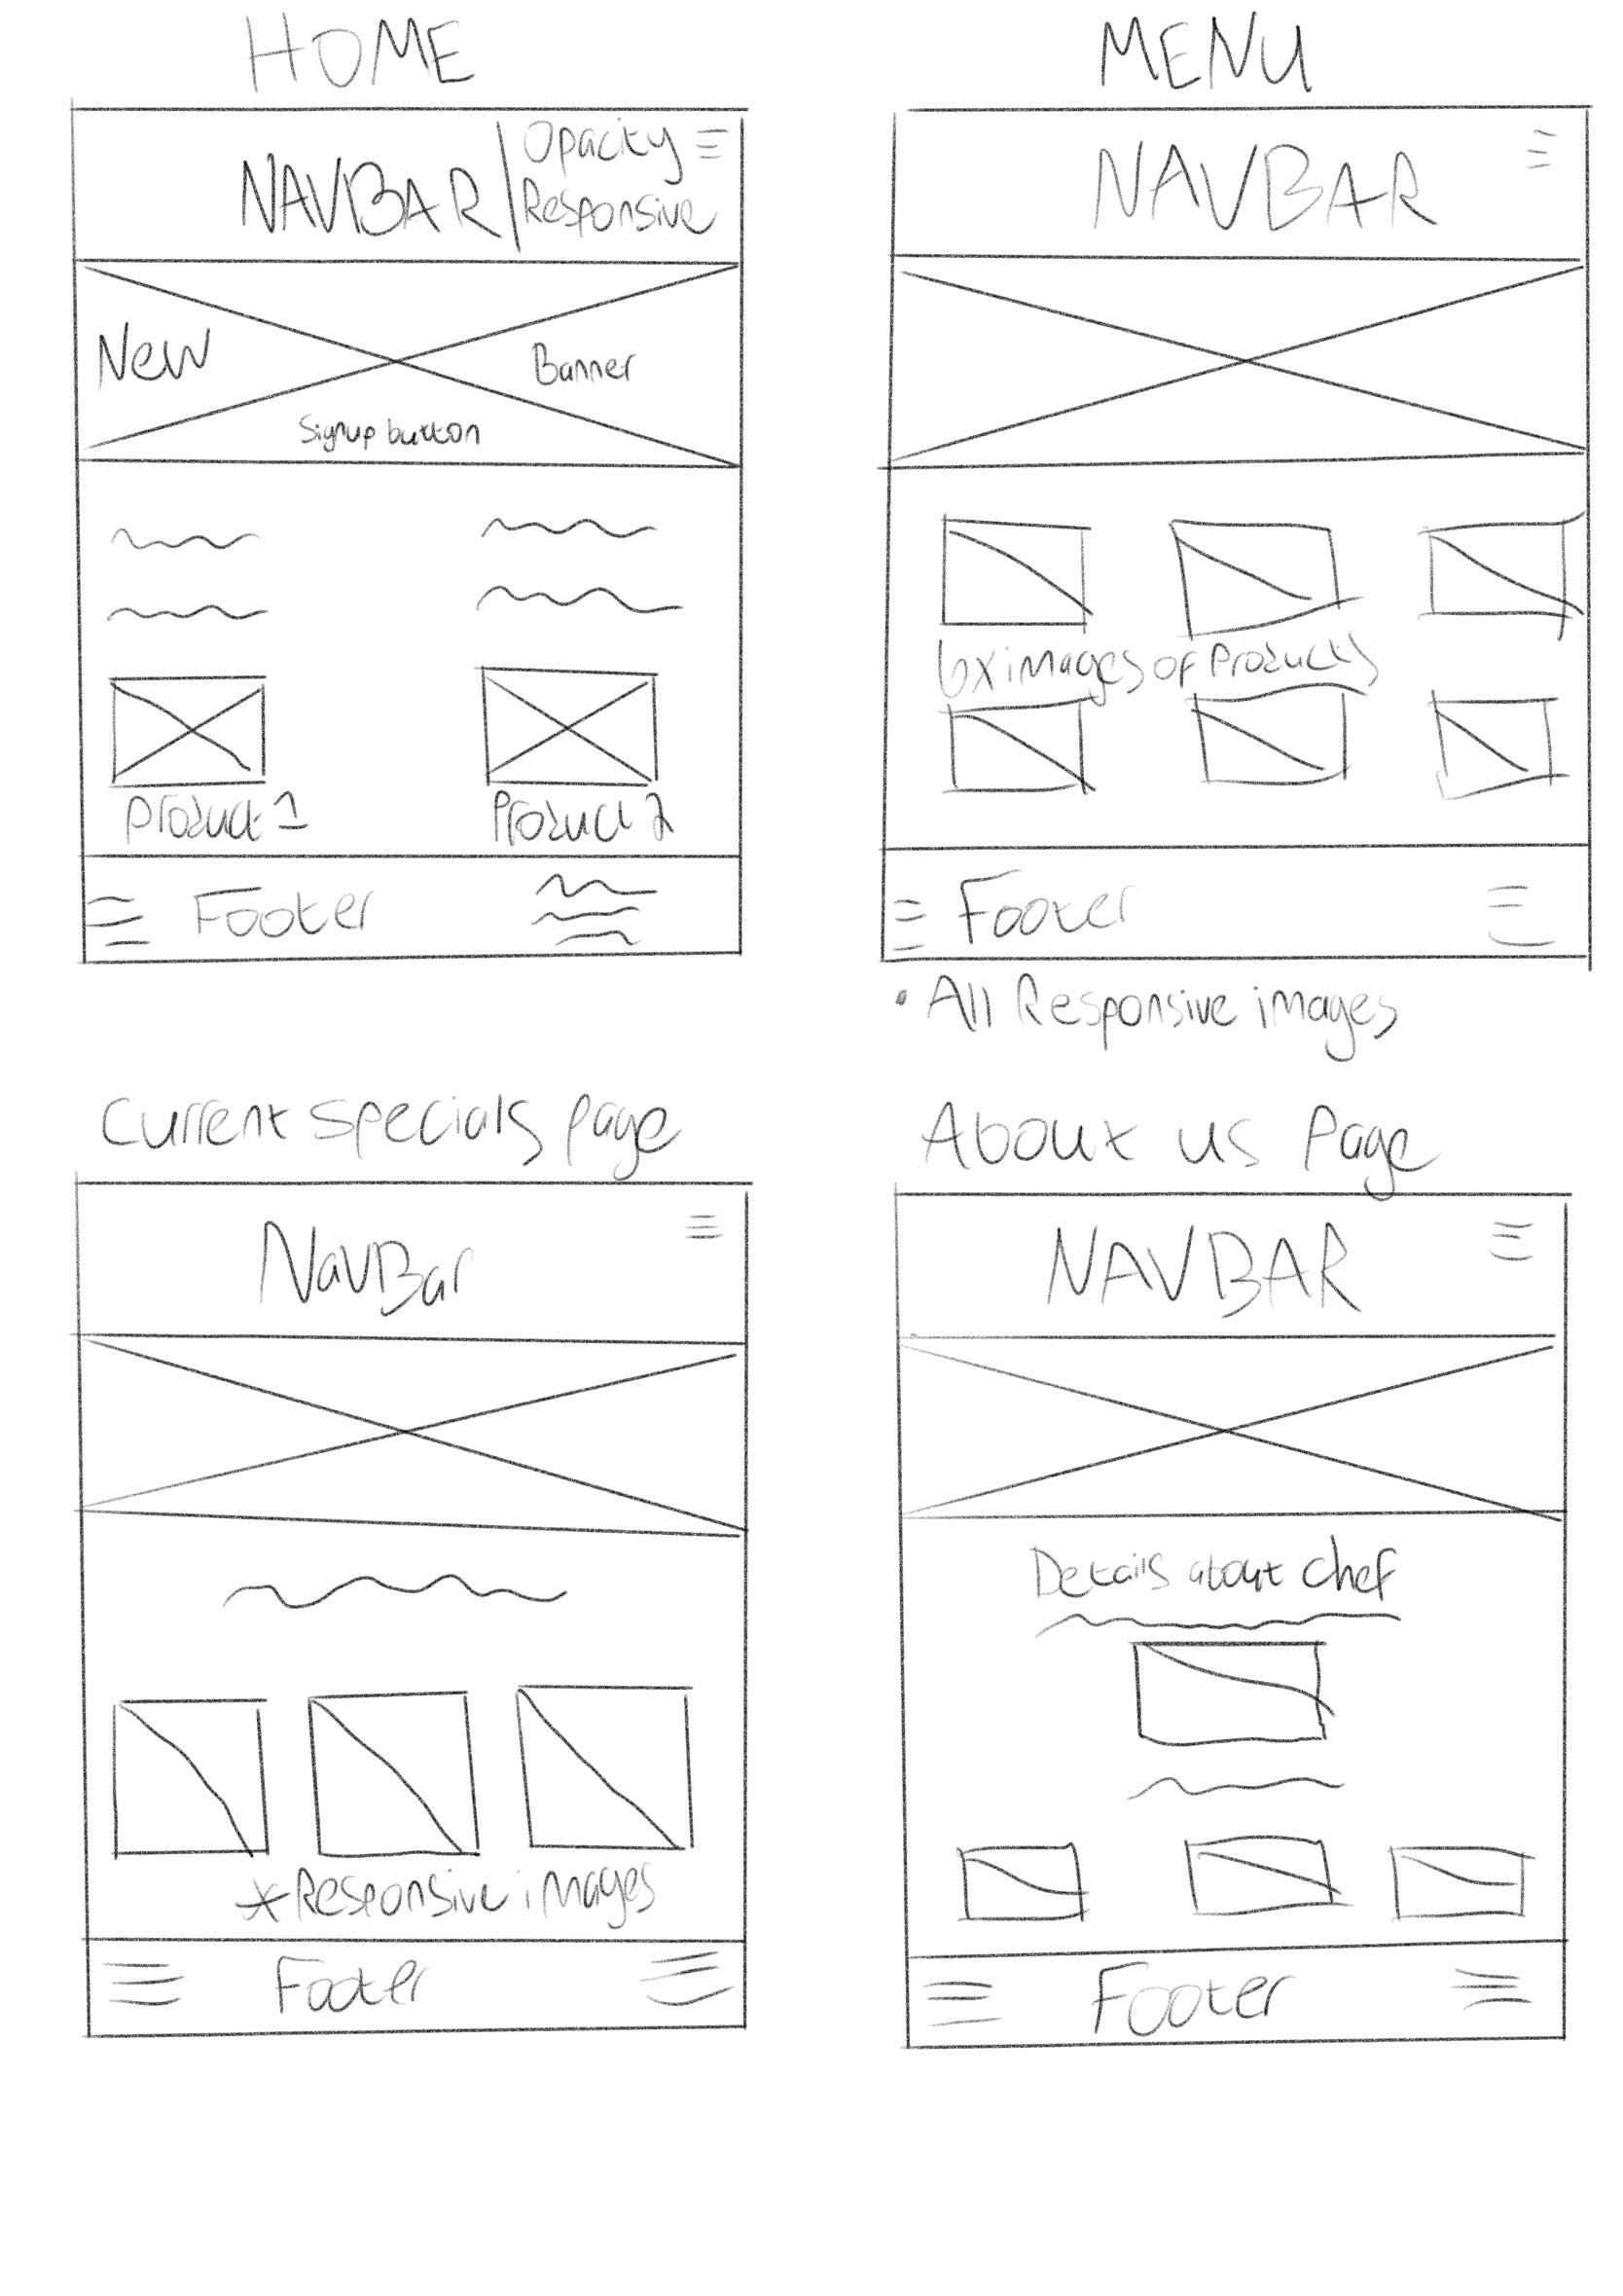 HOME
NAVBAR
Opacity
Responsive
New
Banner
Signup button
Product 1
Product 2
Footer
MENU
NAVBAR
6x images of Products
Footer
• All Responsive images
Current specials page
NavBar
*Responsive images
Footer
About us Page
NAVBAR
Details about chef
Footer